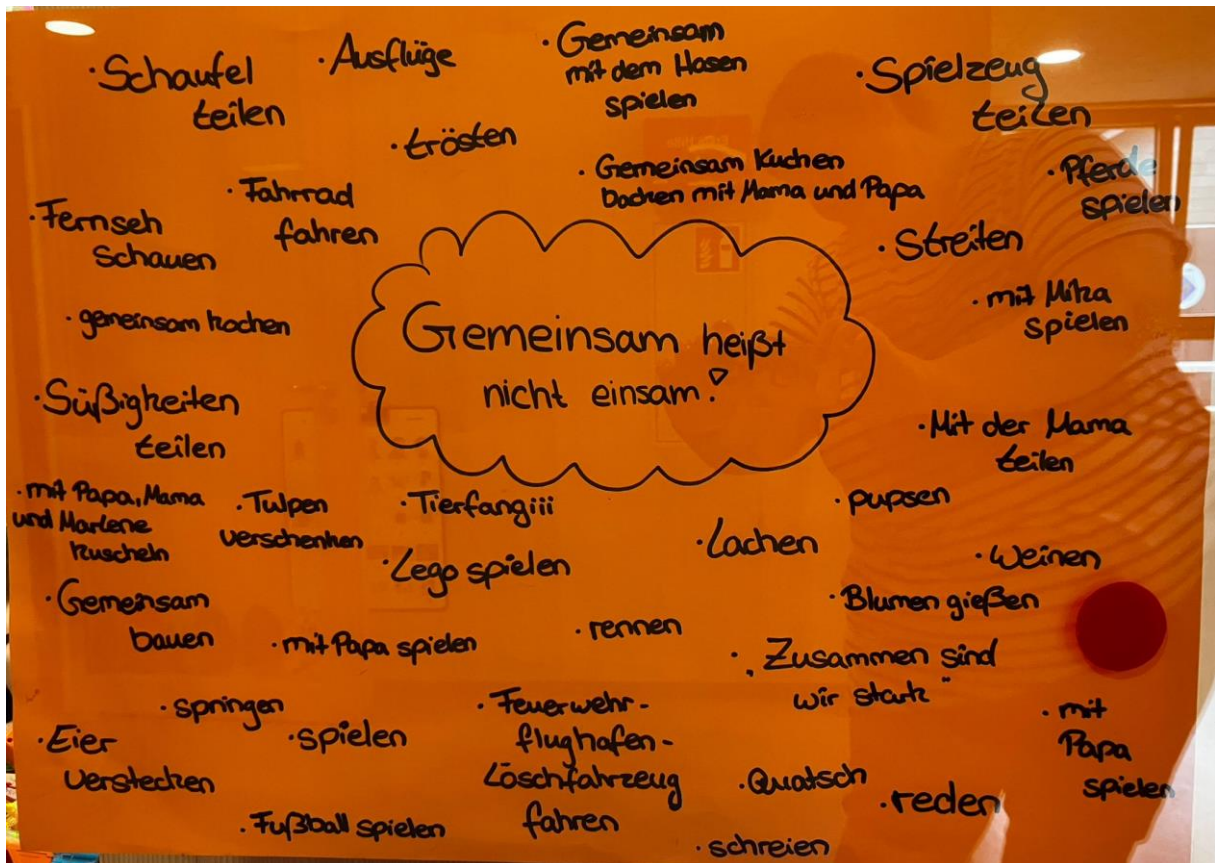 · Schaufel
teilen
· Ausflüge
· Gemeinsam
mit dem Hasen
spielen
· Spielzeug
teilen
· trösten
· Gemeinsam Kuchen
backen mit Mama und Papa
· Pferde
spielen
· Fahrrad
fahren
· Fernseh
schauen
· Streiten
· gemeinsam kochen
· mit Mika
spielen
Gemeinsam heißt
nicht einsam!
· Süßigkeiten
teilen
· Mit der Mama
teilen
· mit Papa, Mama
und Marlene
kuscheln
· Tulpen
verschenken
· Tierfangiii
· pupsen
· Lego spielen
· Lachen
· Weinen
· Gemeinsam
bauen
· Blumen gießen
· mit Papa spielen
· rennen
· „Zusammen sind
wir stark"
· springen
· Eier
verstecken
· spielen
· Feuerwehr-
flughafen-
Löschfahrzeug
fahren
· mit
Papa
spielen
· Quatsch
· reden
· Fußball spielen
· schreien